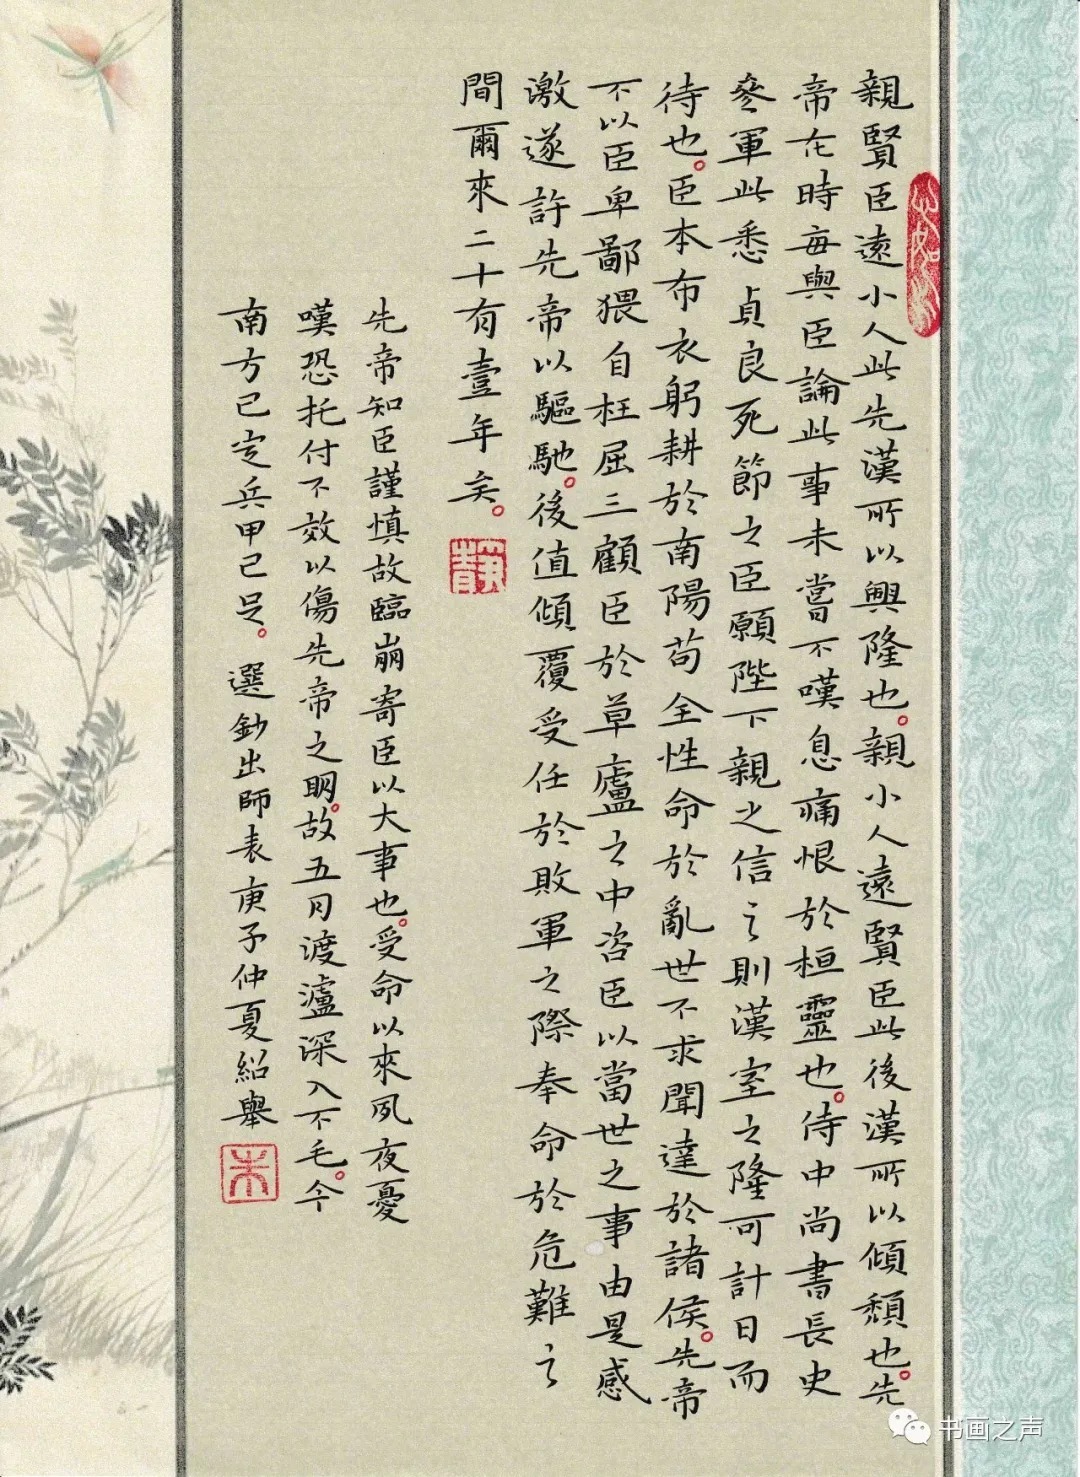 親賢臣遠小人此先漢所以興隆也。親小人遠賢臣此後漢所以傾頹也。先
帝在時每與臣論此事未嘗不嘆息痛恨於桓靈也。侍中尚書長史
參軍此悉貞良死節之臣願陛下親之信之則漢室之隆可計日而
待也。臣本布衣躬耕於南陽苟全性命於亂世不求聞達於諸侯。先帝
不以臣卑鄙猥自枉屈三顧臣於草廬之中咨臣以當世之事由是感
激遂許先帝以驅馳。後值傾覆受任於敗軍之際奉命於危難之
間爾來二十有壹年矣。
先帝知臣謹慎故臨崩寄臣以大事也。受命以來夙夜憂
嘆恐托付不效以傷先帝之明。故五月渡瀘深入不毛。今
南方已定兵甲已足。選鈔出師表庚子仲夏紹舉
朱
书画之声